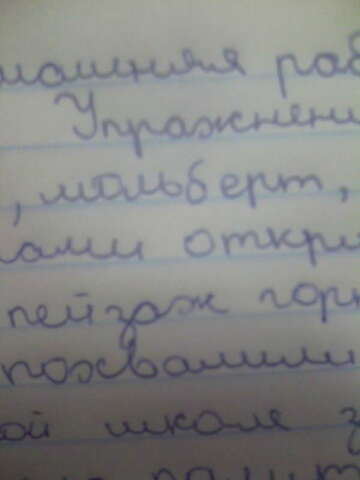 машняя раб
Упражнени
, мольберт,
ами откри
пейзаж гор
похвалили
ой школе з